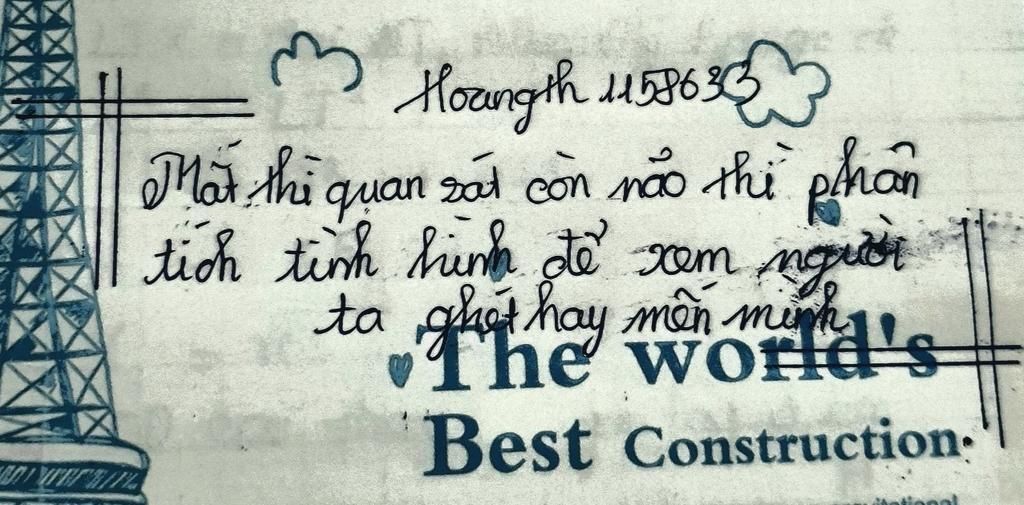 Hoangth 1158633
Mắt thì quan sát còn não thì phân
tích tình hình để xem người
ta ghét hay mến mình
The world's
Best Construction.